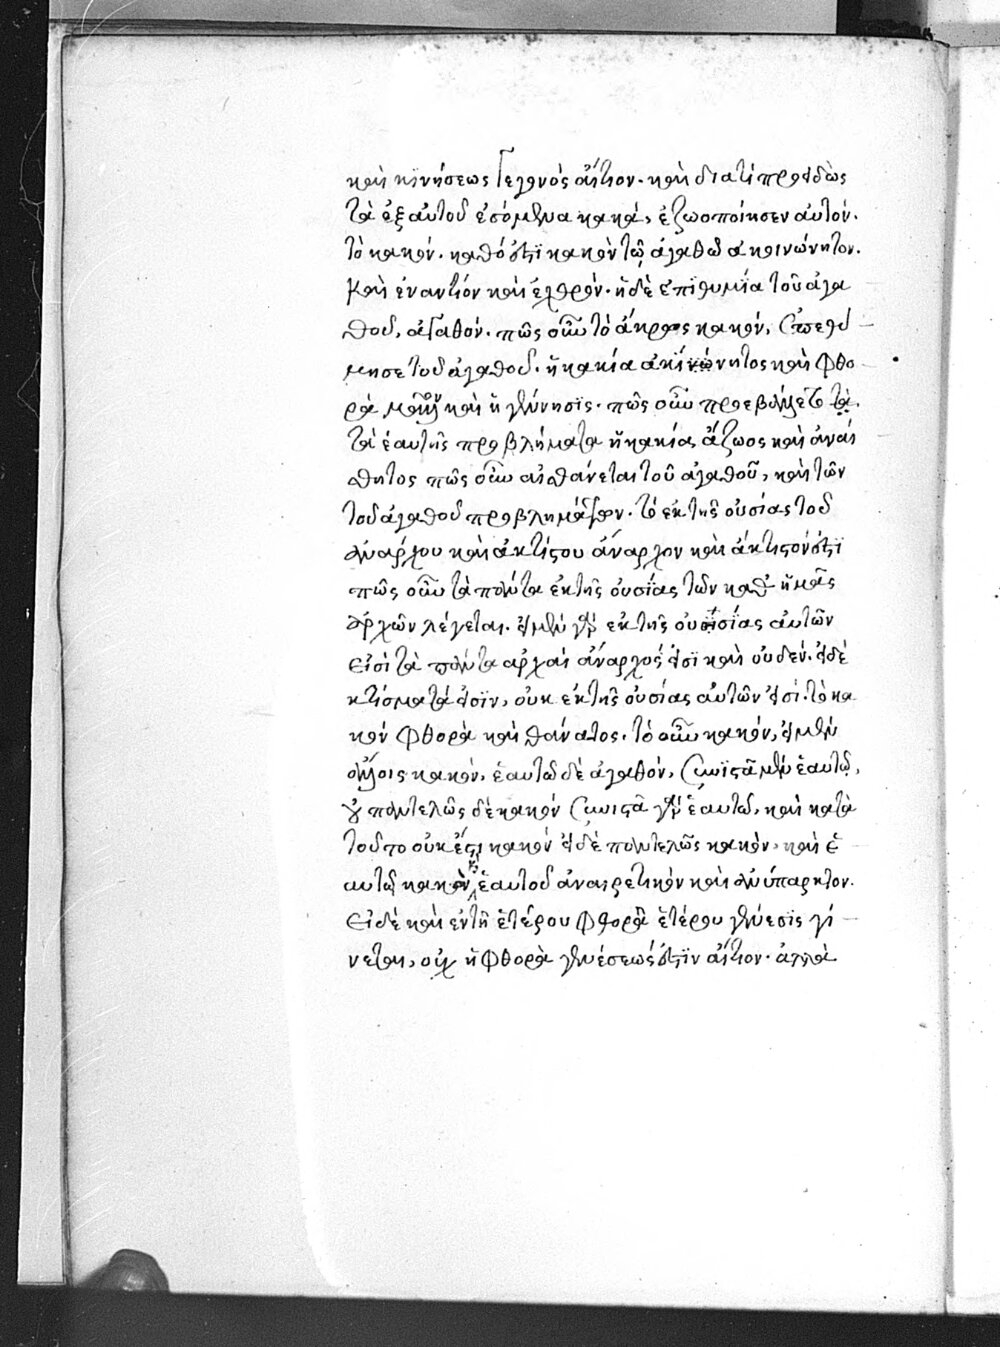 καὶ κϊνήσεως γεγονὸς αἴτιον. καὶ διατί προειδὼς
τὰ ἐξ αὐτοῦ ἐσόμενα κακά, ἐζωοποίησεν αὐτόν.
τὸ κακόν. καθό ἐστϊ κακὸν τῷ ἀγαθῶ ἀκοινώνητον.
καὶ ἐναντίον καὶ ἐχθρόν. ἡ δὲ ἐπϊθυμϊα τοῦ ἀγα
θοῦ, ἀγαθόν. πῶς οὖν τὸ ἄκρως κακόν, ἐπεθύ
μησε τοῦ ἀγαθοῦ. ἡ κακία ἀκϊνητος καὶ φθο
ρὰ μᾶλλον καὶ ἢ γέννησϊς. πῶς οὖν προεβάλλετο τὰ.
τὰ ἑαυτῆς προβλήματα ἡ κακία, ἄζωος καὶ ἀναί
θητος πῶς οὖν αἰσθάνεται τοῦ ἀγαθοῦ, καὶ τῶν
τοῦ ἀγαθοῦ προβλημάτων. τὸ ἐκ τῆς οὐσίας τοῦ
ἀνάρχου καὶ ἀκτίστου ἄναρχον καὶ ἄκτιστόν ἐστϊ
πῶς οὖν τὰ πάντα ἐκ τῆς οὐσίας τῶν καθ' ἡμᾶς
ἀρχῶν λέγεται. εἰ μὲν γὰρ ἐκ τῆς οὐσίας αὐτῶν
εἰσὶ τὰ πάντα ἀρχαὶ ἄναρχοί εἰσϊ καὶ οὐδέν. εἰ δὲ
κτίσματά εἰσϊν, οὐκ ἐκ τῆς οὐσίας αὐτῶν εἰσί. τὸ κα
κὸν φθορὰ καὶ θάνατος. τὸ οὖν κακόν, εἰ μὲν
ἄλλοις κακόν, ἑαυτῶ δὲ ἀγαθόν, συνϊστᾶ μὲν ἑαυτῶ,
οὐ παντελῶς δὲ κακόν συνιστᾶ γὰρ ἑαυτῶ, καὶ κατὰ
τοῦτο οὐκ ἔστι κακόν εἰ δὲ παντελῶς κακόν, καὶ ἑ
αυτῶ κακὸν, κ(αὶ) ἑαυτοῦ ἀναιρετικὸν καὶ ἀνύπαρκτον.
εἰ δὲ καὶ ἐν τῆ ἑτέρου φθορᾶ ἑτέρου γένεσϊς γί
νεται, οὐχ ἡ φθορὰ γενέσεώς ἐστϊν αἴτιον. ἀλλὰ